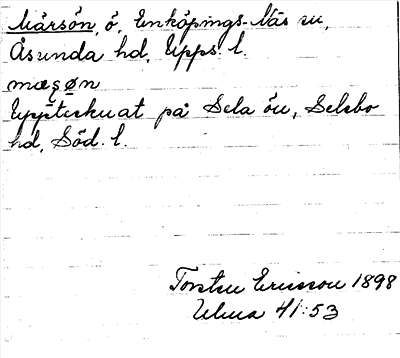 Mårsön, ö, Enköpings-Näs sn,
Åsunda hd, Upps. l.
mæșøn
Upptecknat på Sela ön, Selebo
hd, Söd. l.
Torsten Ericsson 1898
Ulma 41:53